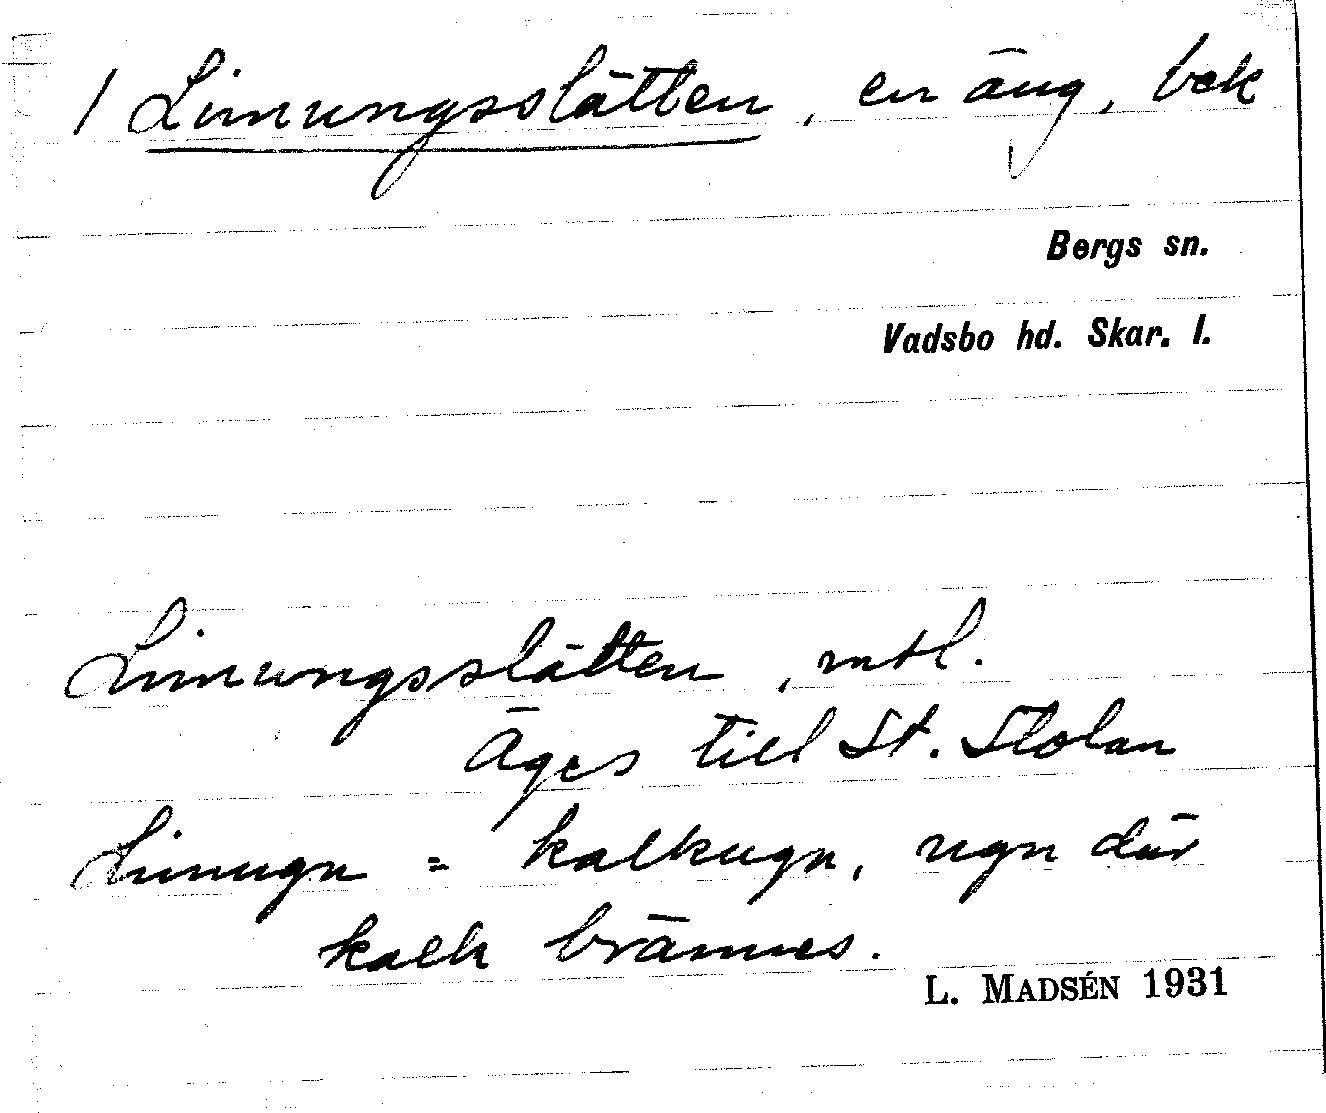 1 Limungsslätten, en äng, bek
Bergs sn.
Vadsbo hd. Skar. l.
Limungsslätten, mtl.
Äges till St. Stolan
Limugn = kalkugn, ugn där
kalk brännes.
L. MADSÉN 1931